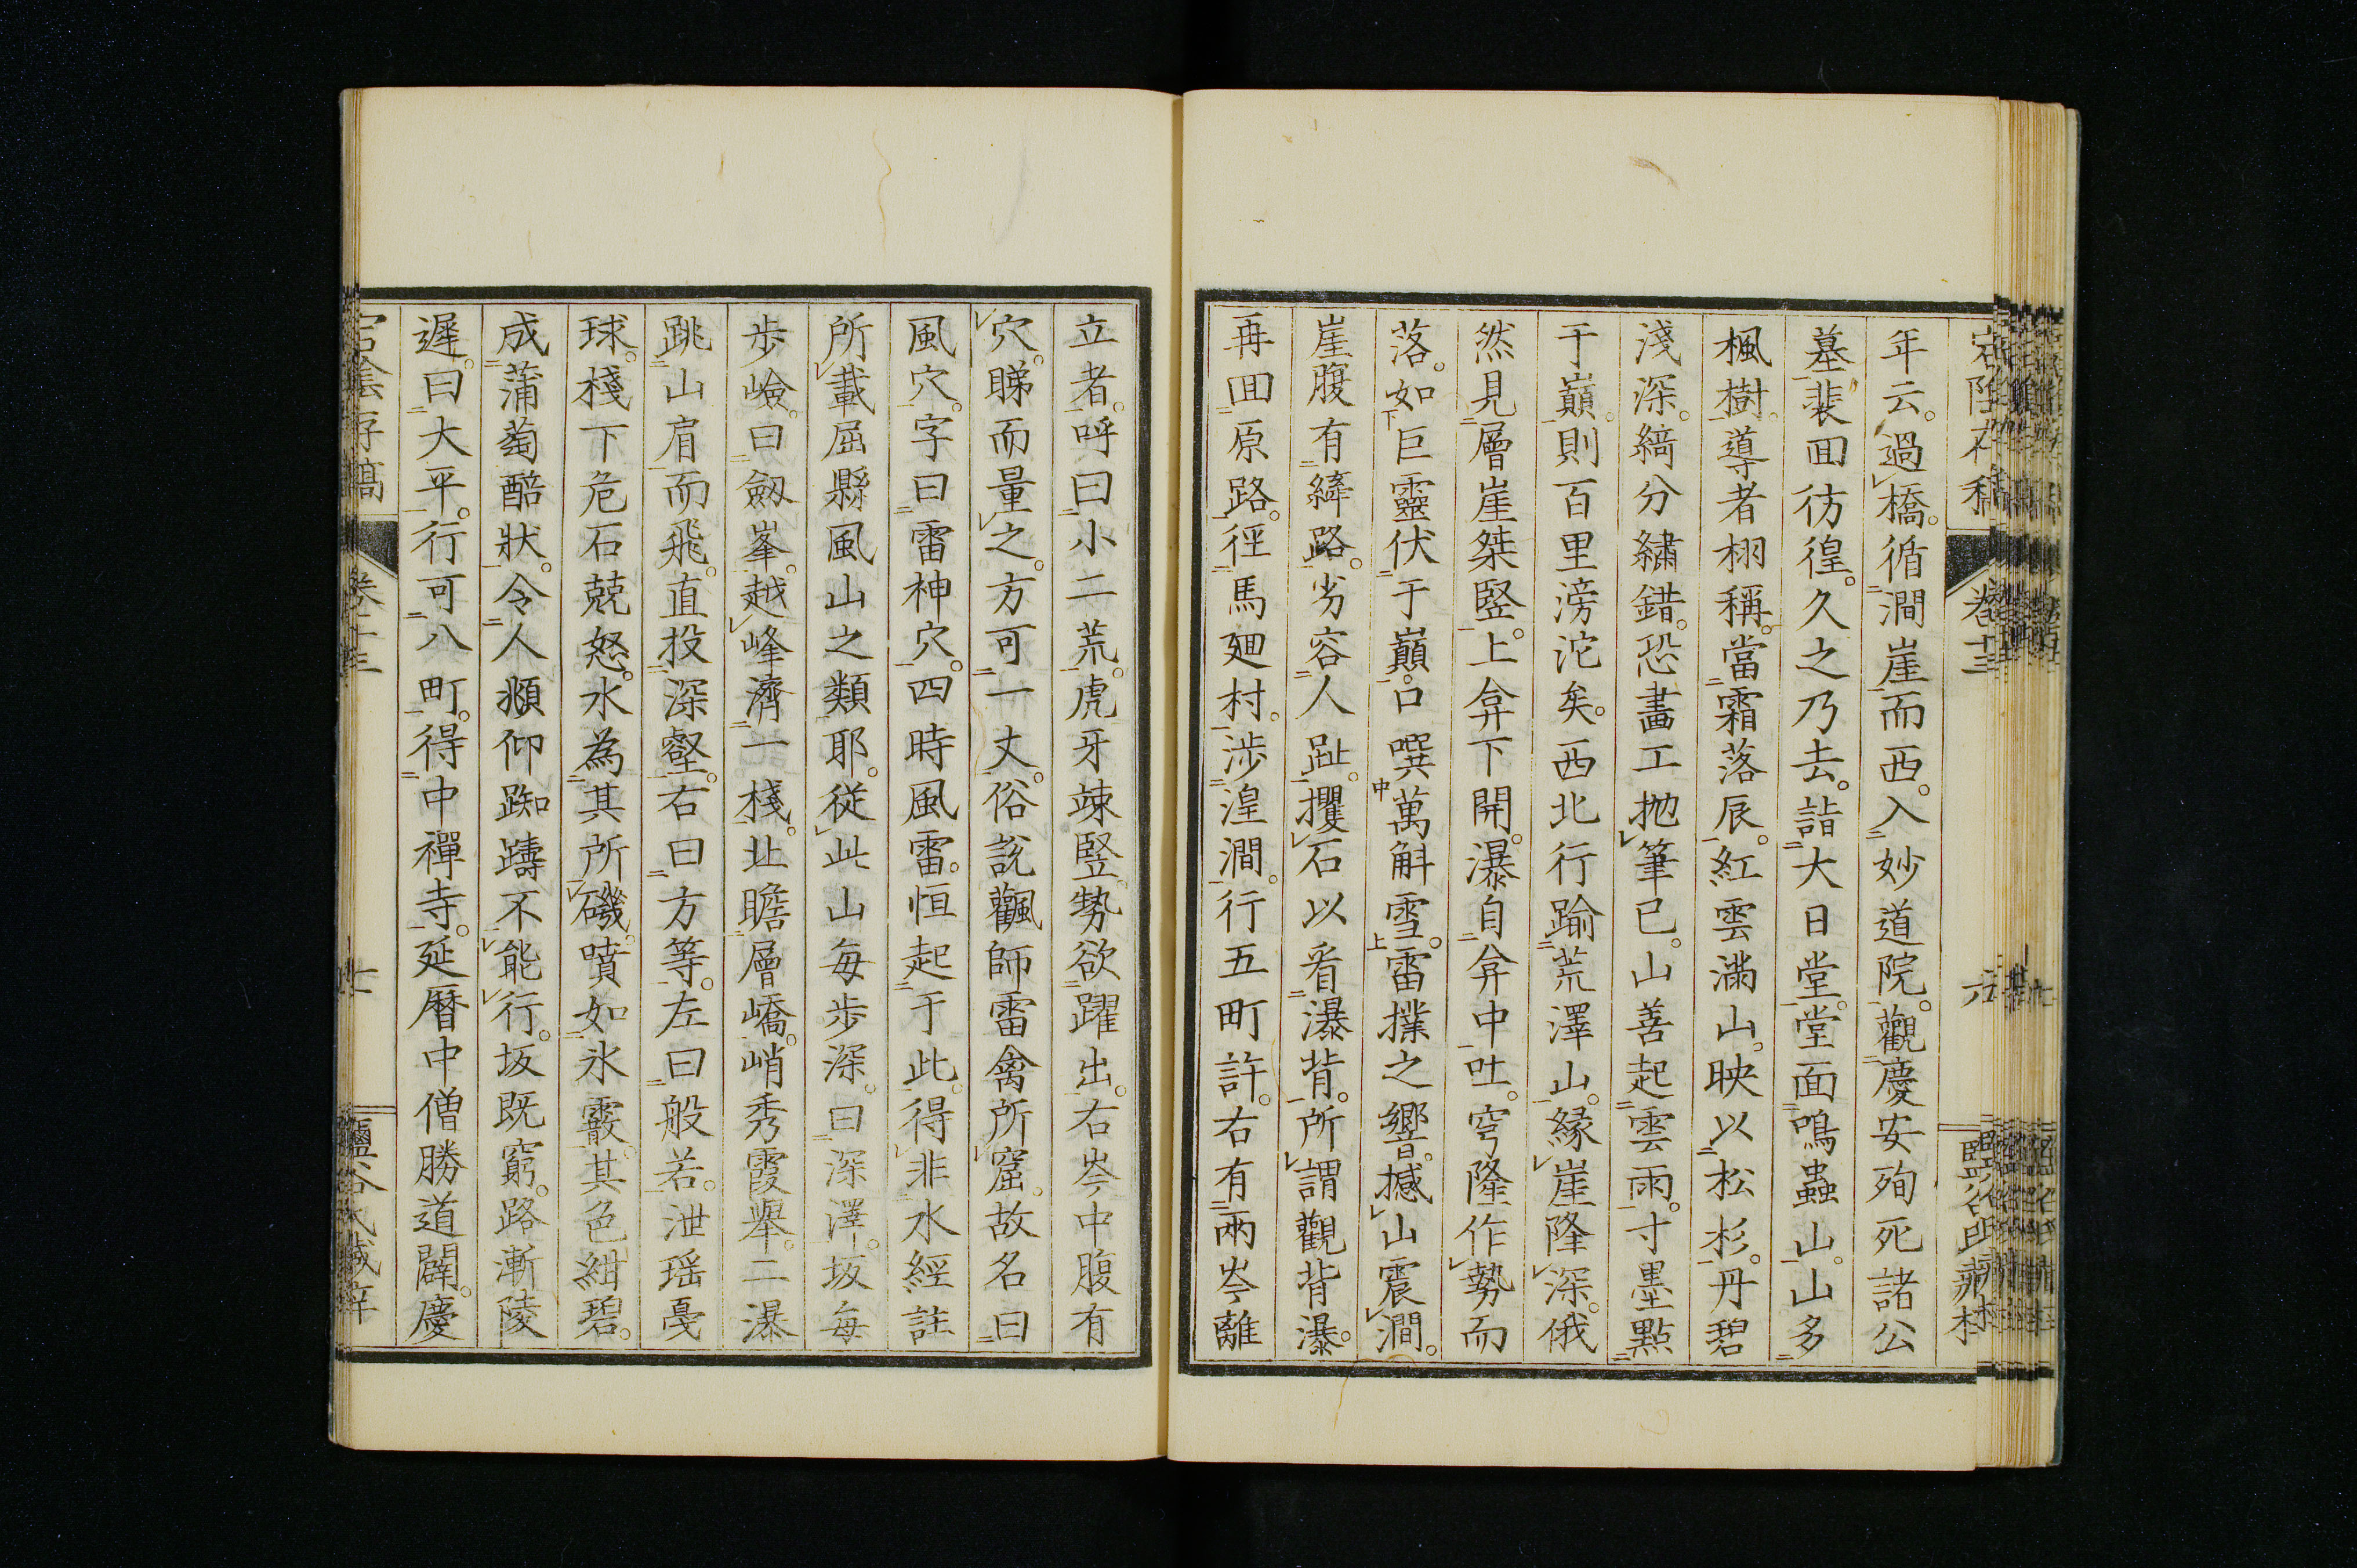 年云。過橋。循澗崖而西。入妙道院。觀慶安殉死諸公
墓。裴囬彷徨。久之乃去。詣大日堂。堂面鳴蟲山。山多
楓樹。導者栩稱。當霜落辰。紅雲滿山。映以松杉。丹碧
淺深。綺分繡錯。恐畫工拋筆已。山善起雲雨。寸墨點
于巔。則百里滂沱矣。西北行踰荒澤山。緣崖隆深。俄
然見層崖桀竪。上弇下開。瀑自弇中吐。穹隆作勢而
落。如巨靈伏于巔。口噀萬斛雪。雷撲之響。撼山震澗。
崖腹有縴路。劣容人趾。攫石以看瀑背。所謂觀背瀑。
再囬原路。徑馬廻村。涉湟澗。行五町許。右有兩岑離
立者。呼曰小二荒。虎牙竦竪。勢欲躍出。右岑中腹有
穴。睇而量之。方可一丈。俗說飌師雷禽所窟。故名曰
風穴。字曰雷神穴。四時風雷。恒起于此。得非水經註
所載屈縣風山之類耶。從此山每步深。曰深澤。坂每
步嶮。曰劔峯。越峰濟一棧。北瞻層嶠。峭秀霞舉。二瀑
跳山肩而飛。直投深壑。右曰方等。左曰般若。泄瑶戞
球。棧下危石兢怒。水為其所磯。噴如氷霰。其色紺碧。
成蒲萄醅狀。令人頫仰踟躊不能行。坂既窮。路漸陵
遲。曰大平。行可八町。得中禪寺。延曆中僧勝道闢。慶
卷十三
六